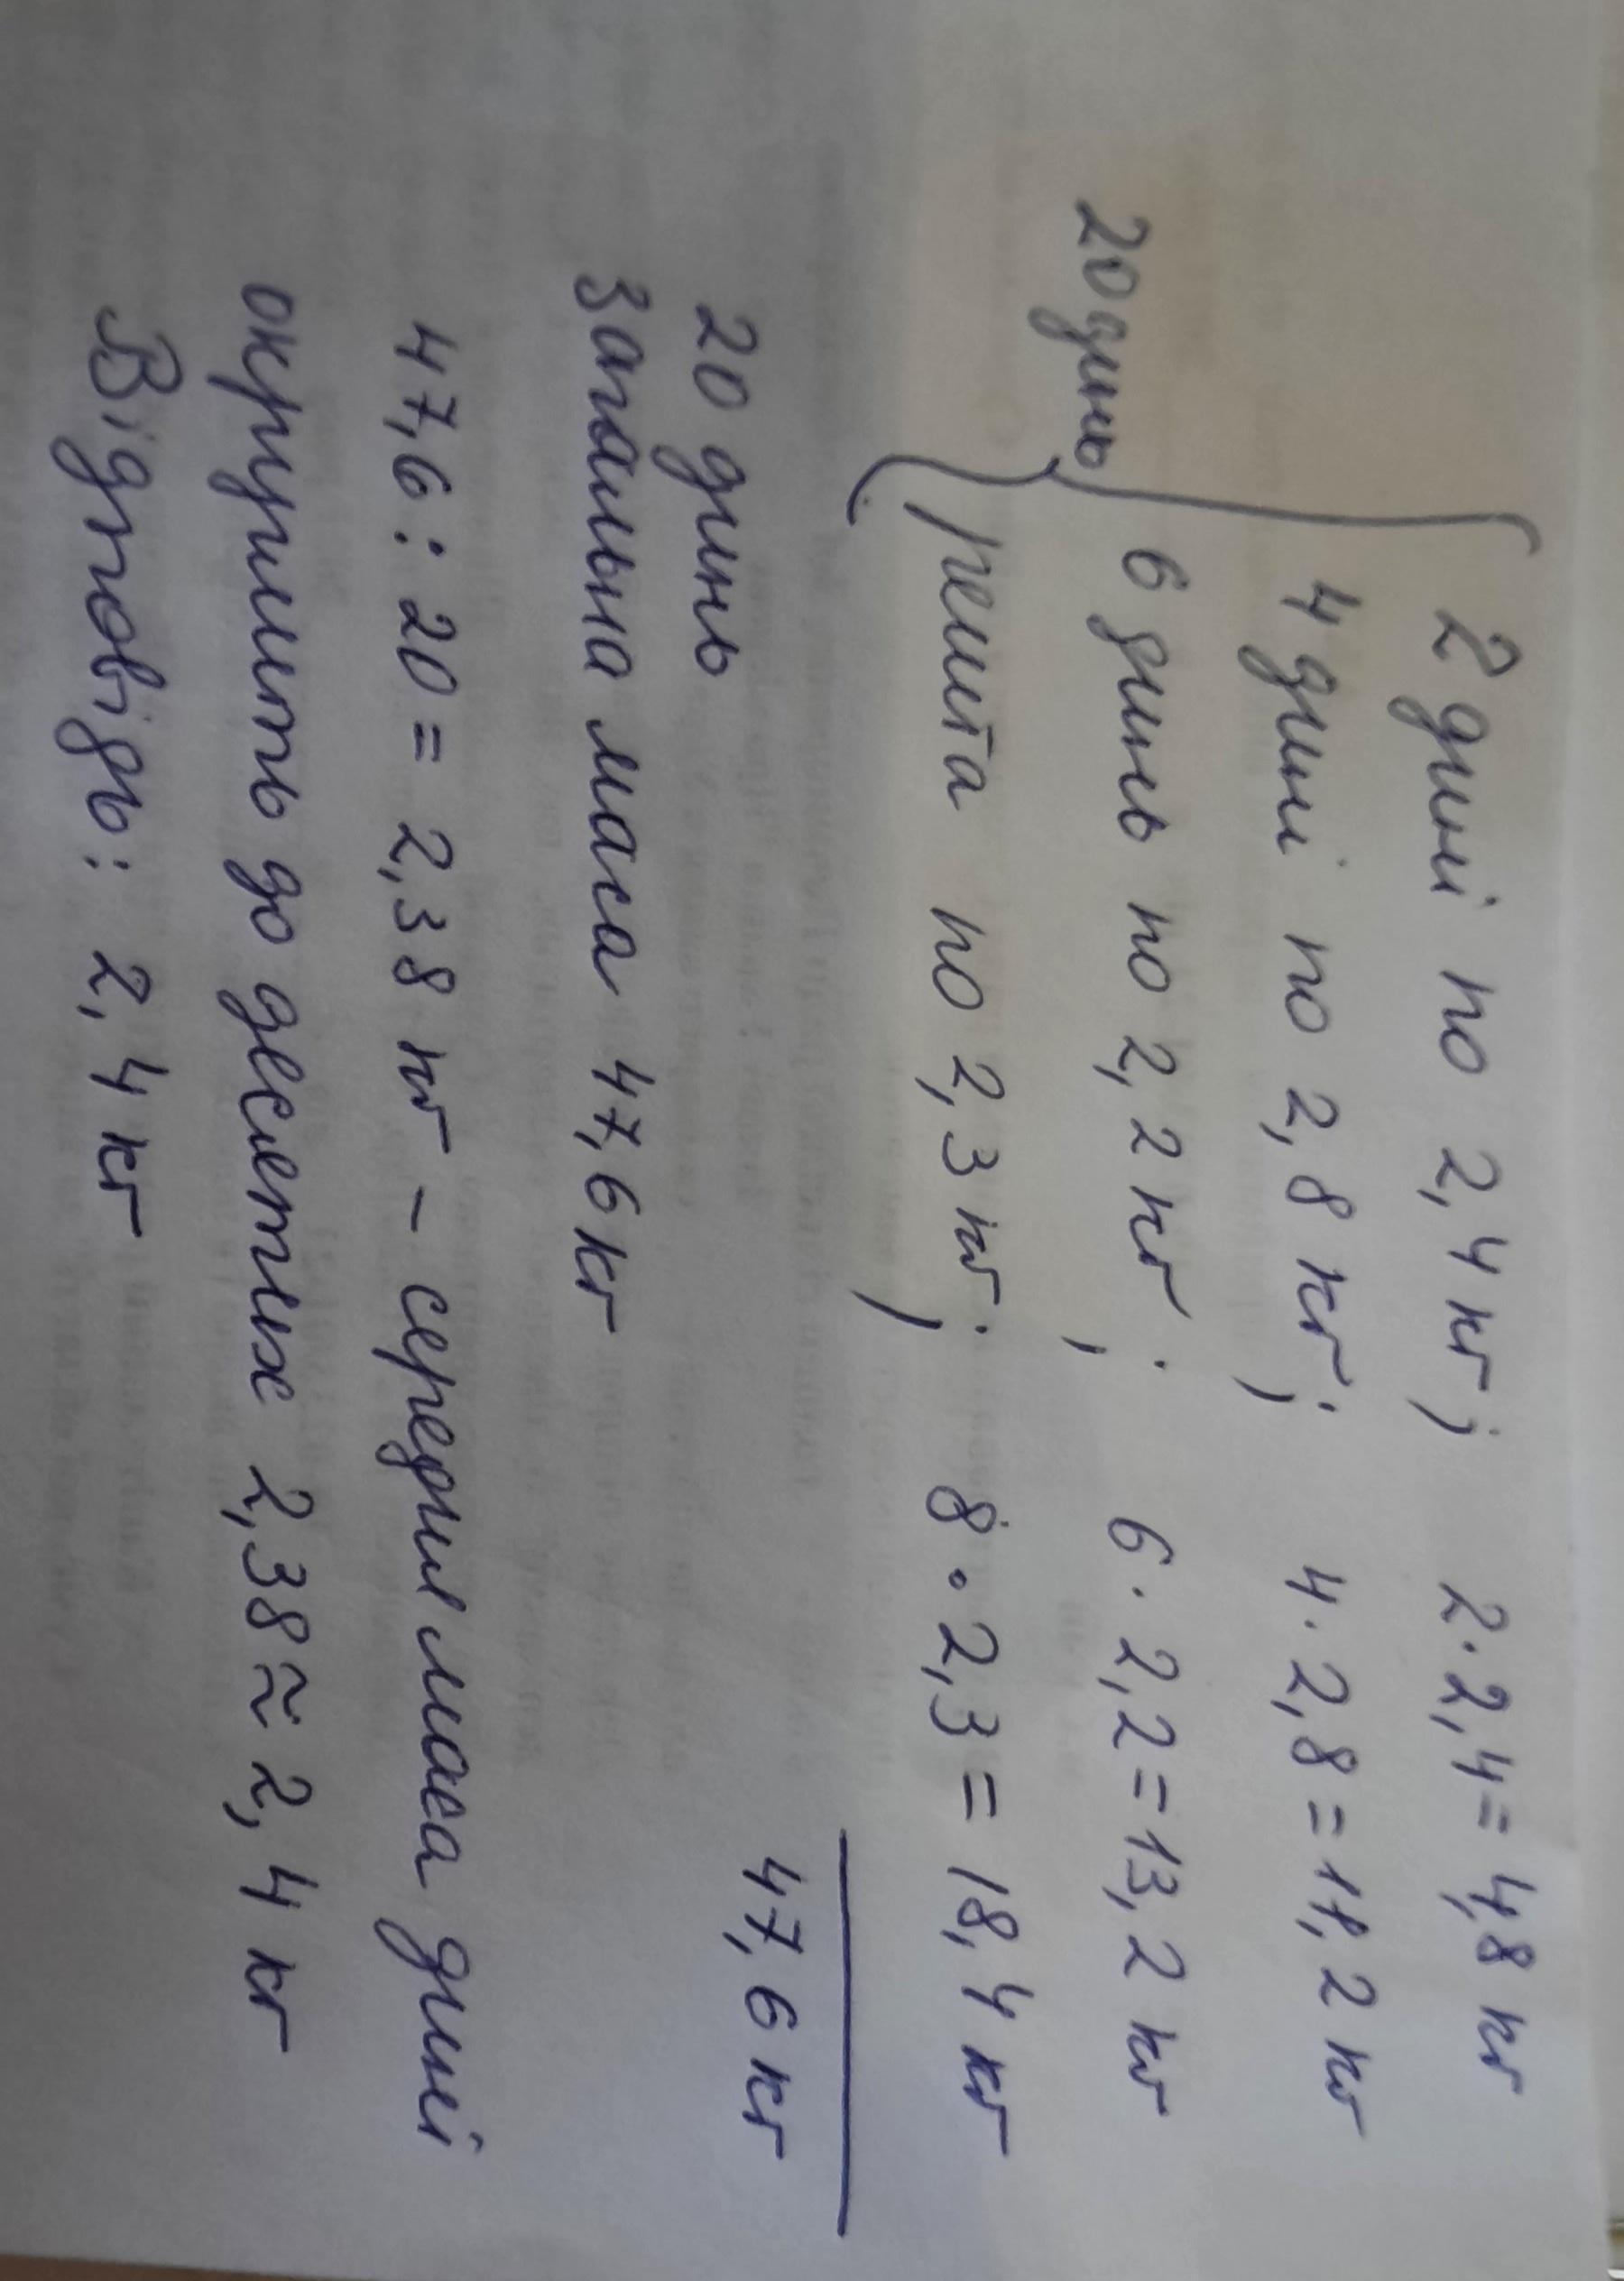 2 дині по 2,4 кг; 2·2,4=4,8 кг
4 дині по 2,8 кг; 4·2,8=11,2 кг
20 динь
6 динь по 2,2 кг; 6·2,2=13,2 кг
решта по 2,3 кг; 8·2,3=18,4 кг
47,6 кг
20 динь
загальна маса 47,6 кг
47,6:20=2,38 кг – середня маса дині
округлить до десятих 2,38≈2,4 кг
Відповідь: 2,4 кг